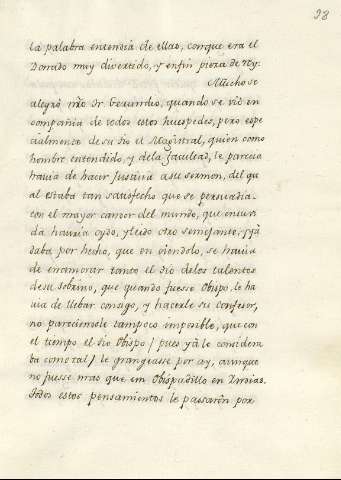 98
la palabra entendia de ellas, conque era el
Donado muy divertido, y enfin pieza de Rey.
Mucho se
alegró nrõ fr Gerundio, quando se vió en
compañia de todos estos huespedes, pero espe
cialmente de su tio el Magistral, quien como
hombre entendido, y de la facultad, le parecia
havia de hacer justicia a su sermon, del qu
al estaba tan satisfecho que se persuadia
con el mayor candor del mundo, que en su vi
da havria oydo, y leido otro semejante; y yá
daba por hecho, que en oiendolo, se havia
de enamorar tanto el tio de los talentos
de su sobrino, que quando fuesse Obispo, le ha
via de llebar consigo, y hacerle su Confesor,
no pareciendole tampoco imposible, que con
el tiempo el tio Obispo / pues yá le considera
ba como tal / le grangeasse por ay, aunque
no fuesse mas que un Obispadillo en Yndias.
Todos estos pensamientos le passaron por